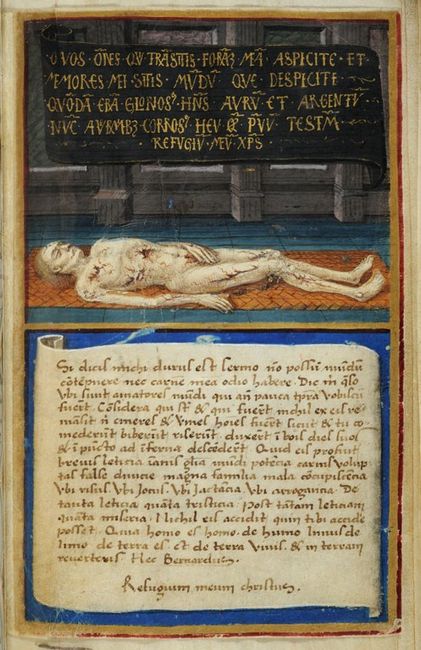 O VOS OMES QVI TRASITIS FORAZ MEA ASPICITE ET
MEMORES MEI SITIS MVDU QVE DESPICITE
QVODA ERA GLORIOS9 HNS AVRV ET ARGENTV
NVC A VERMIBZ CORROS9 HEV TESTM
REFVGIV MEV XPS
Si dicis michi durus est sermo no possum mundu
cotepnere nec carne mea odio habere. Dic m qso
Vbi sunt amatores mundi qui an pauca tpra vobiscu
fuert. Considera qui st & qui fuert nichil ex eis re-
masit n cineres & vmes hoies fuert sicut & tu co-
mederut biberut riserut. duxert i bois dies suos
& i pucto ad iferna descedert Quid eis profuit
brevis leticia ianis glia mudi potecia carnis volup-
tas false divicie magna familia mala cocupiscecia
Vbi risus Vbi Jocus. Vbi Jactacia Vbi arrogancia. De
tanta leticia quata tristicia. Post tatam leticiam
quata miseria. Nichil eis accidit quin tibi accide
posset. Quia homo es homo. de humo limus de
limo de terra es. et de terra vivis. & in terram
reverteris Hec Bernardus.
Refugium meum christus.